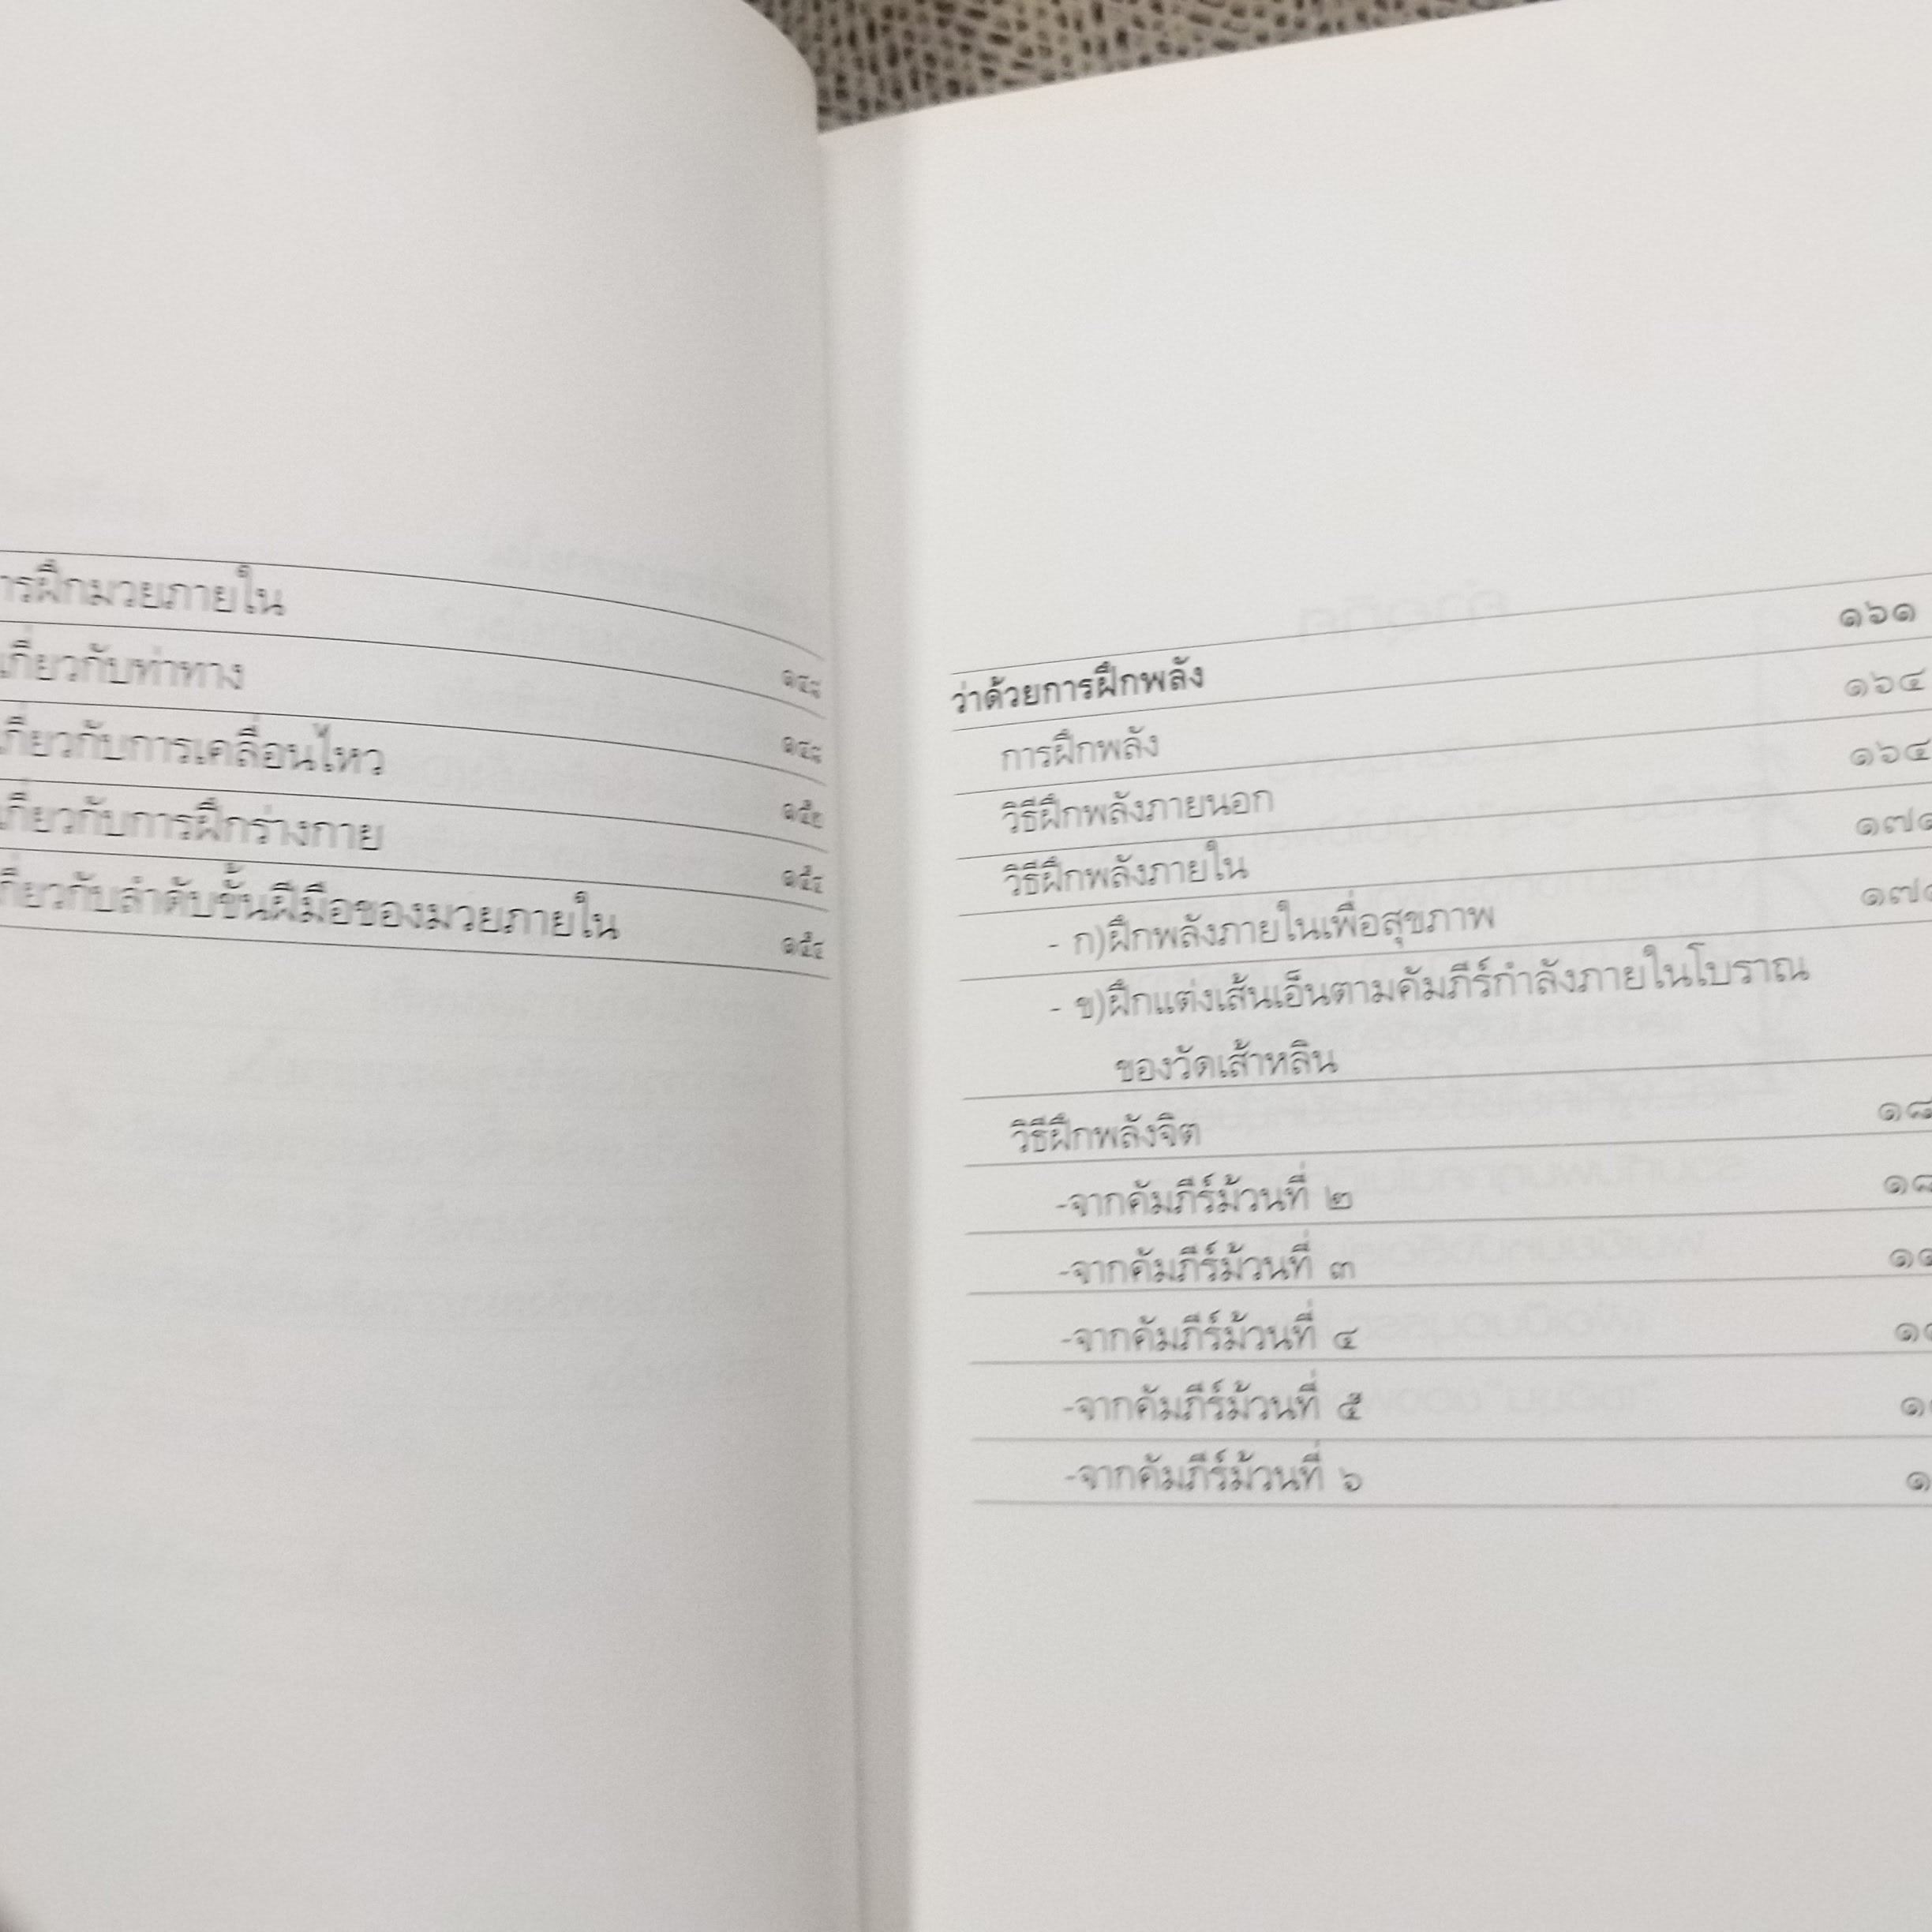 ารฝึกมวยภายใน
เกี่ยวกับท่าทาง ๑๔๘
เกี่ยวกับการเคลื่อนไหว ๑๔๘
เกี่ยวกับการฝึกร่างกาย ๑๕๒
เกี่ยวกับลำดับชั้นฝีมือของมวยภายใน
ว่าด้วยการฝึกพลัง ๑๖๑
การฝึกพลัง ๑๖๔
วิธีฝึกพลังภายนอก ๑๖๔
วิธีฝึกพลังภายใน
- ก)ฝึกพลังภายในเพื่อสุขภาพ
- ข)ฝึกแต่งเส้นเอ็นตามคัมภีร์กำลังภายในโบราณ
ของวัดเส้าหลิน
วิธีฝึกพลังจิต
-จากคัมภีร์ม้วนที่ ๒
-จากคัมภีร์ม้วนที่ ๓
-จากคัมภีร์ม้วนที่ ๔
-จากคัมภีร์ม้วนที่ ๕
-จากคัมภีร์ม้วนที่ ๖